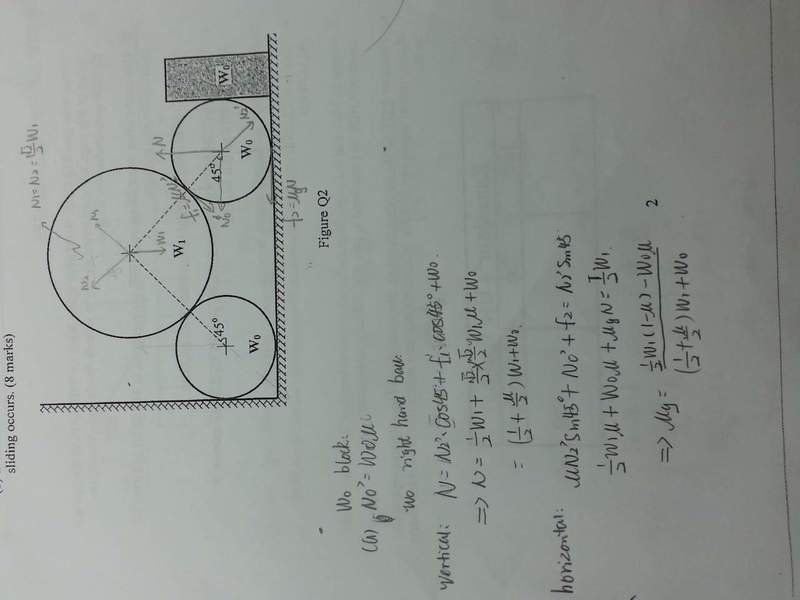 sliding occurs. (8 marks)
N₁=N₂=√2/2 W₁
N₁
N₂
W₁
W₁
45°
W₀
N
45°
W₀
N₂'
W₀
N₀'
f₂=μgN
Figure Q2
W₀ block:
(a) N₀'=W₀μ
W₀ right hand ball.
vertical: N=N₂'cos45°+f₁cos45°+W₀.
=> N=1/2 W₁+√2/2×√2/2 W₁μ+W₀
=(1/2+μ/2)W₁+W₀.
horizontal: μN₂'sin45°+N₀'+f₂=N₂'sin45
1/2 W₁μ+W₀μ+μgN=1/2 W₁.
=> μg= (1/2 W₁(1-μ)-W₀μ)/((1/2+μ/2)W₁+W₀)
2